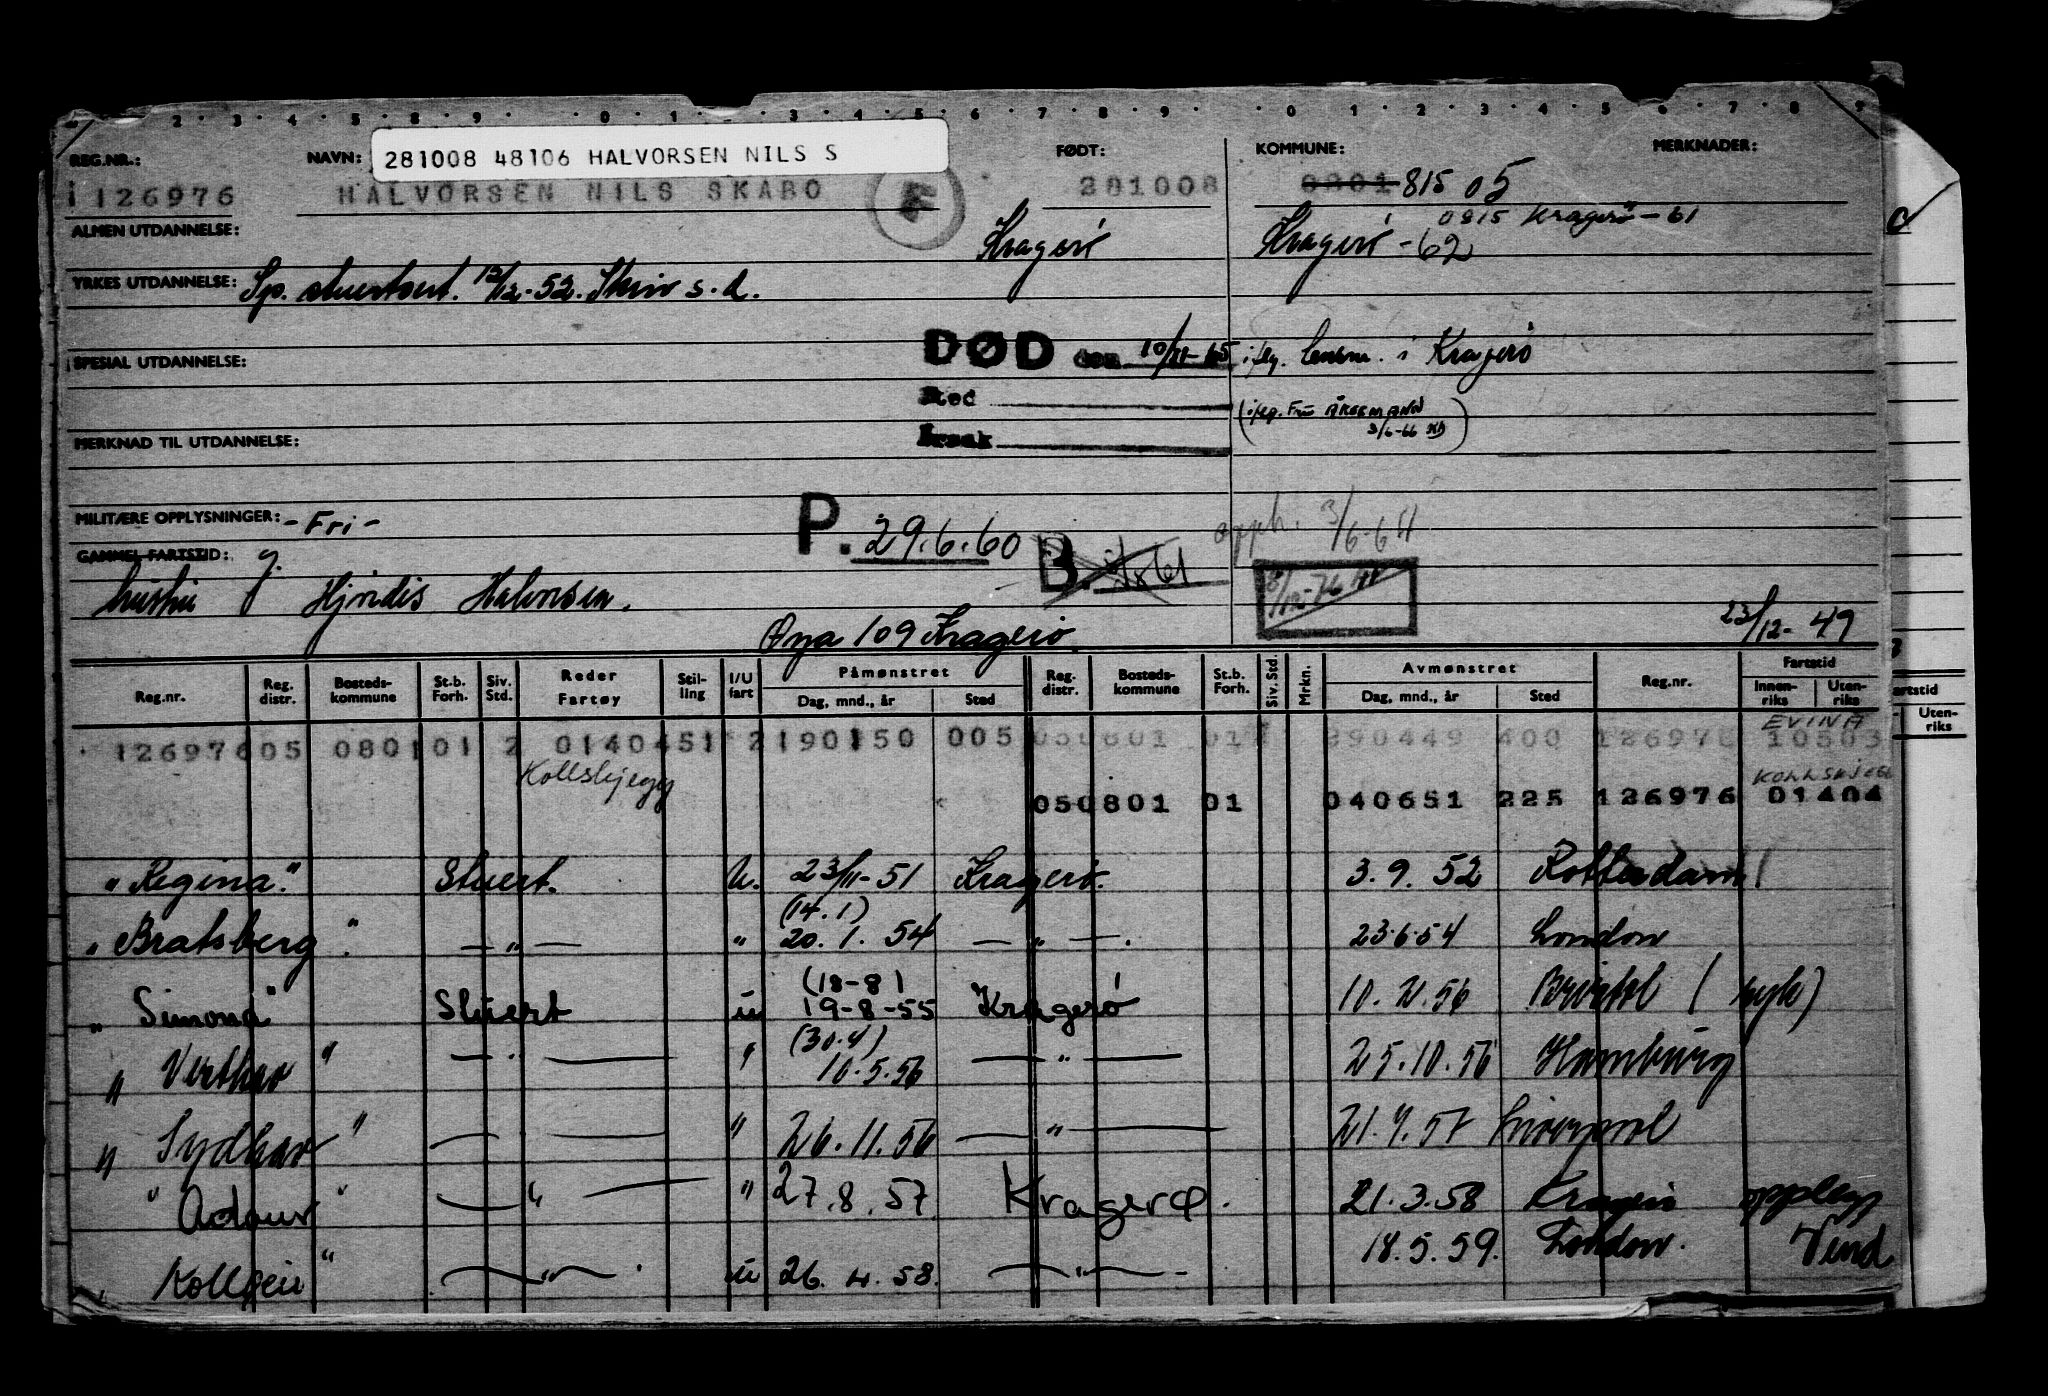 2 · 3 · 4 · 5 · 8 · 9 · 0 · 1 · 3 · 4 · 5 · 6 · 7 · 8 · 9 · 0 · 1 · 2 · 3 · 4 · 5 · 6 · 7 · 8 · 9
REG.NR.: NAVN: 281008 48106 HALVORSEN NILS S FØDT: KOMMUNE: MERKNADER:
126976 HALVORSEN NILS SKABO F 281008 0801 815 05
ALMEN UTDANNELSE: Kragerø Kragerø -62 0815 Kragerø -61
YRKES UTDANNELSE: Sp. stuertsert. 12/12-52. Skriv s.d.
SPESIAL UTDANNELSE: DØD den 10/11-65 iflg. lensm. i Kragerø
Sted
(iflg. Fru ÅKERMANN
3/6-66
MERKNAD TIL UTDANNELSE: Årsak
MILITÆRE OPPLYSNINGER: -Fri- P. 29.6.60 opph. 3/6-64
GAMMEL FARTSTID: B.
hustru Hjördis Halvorsen. 8/12-76
Øya 109 Kragerø 23/12-49
Reg.nr. Reg. distr. Bosteds-kommune St.b. Forh. Siv. Std. Reder Fartøy Stil-ling I/U fart Påmønstret Dag, mnd., år Sted Reg. distr. Bosteds-kommune St.b. Forh. Siv. Std. Mrkn. Avmønstret Dag, mnd., år Sted Reg.nr. Fartstid Innen-riks Uten-riks
artstid Uten-riks
EVINA
126976 05 0801 01 2 01404 51 2 190150 005 050801 01 290449 400 126976 10503
Kollskjegg KOLLSKJEGG
050801 01 040651 225 126976 01404
"Regina." Stuert. U. 23/11-51 Kragerø. 3.9.52 Rotterdam
(14.1)
"Bratsberg" — " — " 20.1.54 — " —. 23.6.54 London
(18-8)
"Simona" Stuert u 19-8-55 Kragerø 10.2.56 Bristol (syk)
(30.4)
"Vesthav" — " — " 10.5.56 — " — 25.10.56 Hamburg
"Sydhav" — — " 26.11.56 — " — 21.7.57 Liverpool
"Adour" — " — " 27.8.57. Kragerø. 21.3.58 Kragerø opplegg
"Kollgeir" — " —. u 26.4.58. — " — 18.5.59. London. Vend